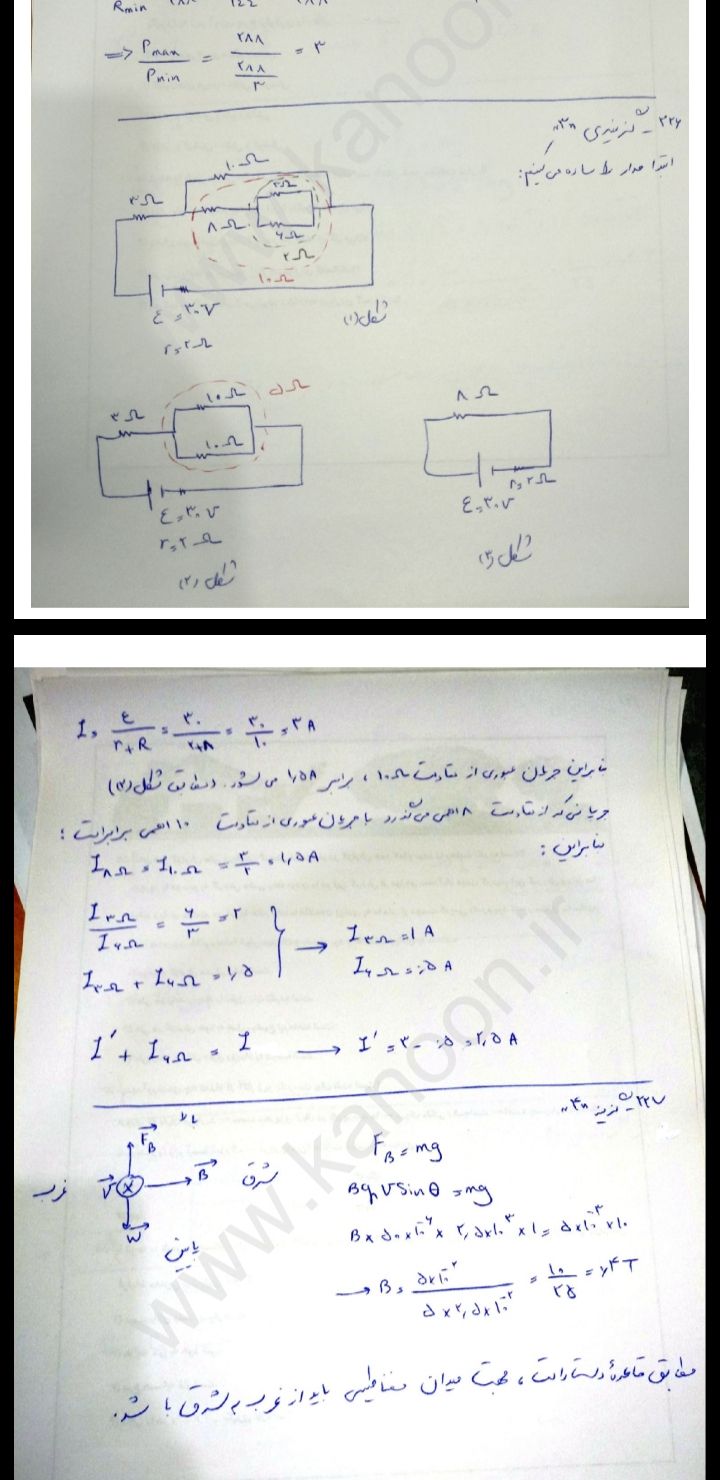 R min ۲۸۸ ۱۴۴ ۲۸۸
=> Pmax / Pmin = ۲۸۸ / (۲۸۸ / ۳) = ۳
۲۲۶ - گزینه‌ی «۳»
ابتدا مدار را ساده می‌کنیم:
۱۰Ω
۳Ω
۳Ω
۸Ω
۶Ω
۲Ω
۱۰Ω
ε = ۳۰V
r = ۲Ω
شکل (۱)
۳Ω
۱۰Ω
۵Ω
۱۰Ω
ε = ۳۰V
r = ۲Ω
شکل (۲)
۸Ω
r = ۲Ω
ε = ۳۰V
شکل (۳)
I = ε / (r+R) = ۳۰ / (۲+۸) = ۳۰ / ۱۰ = ۳A
بنابراین جریان عبوری از مقاومت ۱۰Ω، برابر ۱٫۵A می‌شود. مطابق شکل (۲)
جریانی که از مقاومت ۸ اهمی می‌گذرد با جریان عبوری از مقاومت ۱۰ اهمی برابر است؛
بنابراین:
I۸Ω = I۱۰Ω = ۳/۲ = ۱٫۵A
I۳Ω / I۶Ω = ۶/۳ = ۲
I۳Ω + I۶Ω = ۱٫۵
→ I۳Ω = ۱A
I۶Ω = ۰٫۵A
I' + I۶Ω = I → I' = ۳ - ۰٫۵ = ۲٫۵A
۲۲۷ - گزینه «۴»
بالا
F_B
غرب
V
B
شرق
W
پایین
F_B = mg
B q V Sin θ = mg
B × ۵۰×۱۰⁻⁶ × ۲٫۵×۱۰³ × ۱ = ۵×۱۰⁻³ × ۱۰
→ B = ۵×۱۰⁻² / (۵×۲٫۵×۱۰⁻²) = ۱۰/۲۵ = ۰٫۴T
مطابق قاعدهٔ دست راست، جهت میدان مغناطیسی باید از غرب به شرق باشد.
www.kanoon.ir
www.kanoon.ir